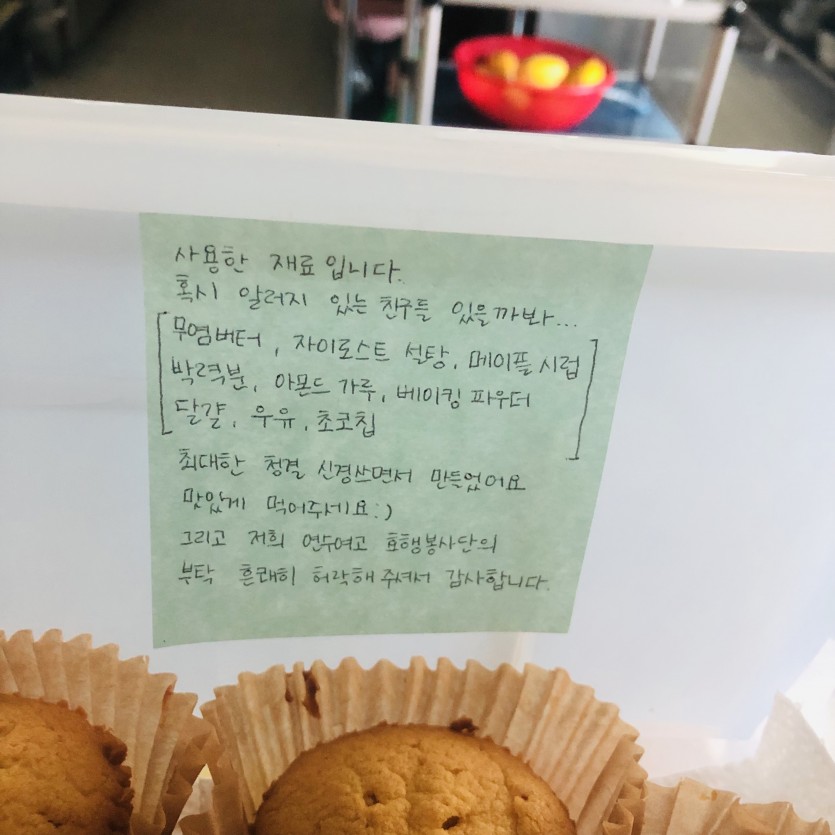 사용한 재료입니다.
혹시 알러지 있는 친구들 있을까봐...
[무염버터, 자이로스트 설탕, 메이플 시럽
박력분, 아몬드 가루, 베이킹 파우더
달걀, 우유, 초코칩]
최대한 청결 신경쓰면서 만들었어요
맛있게 먹어주세요:)
그리고 저희 연수여고 효행봉사단의
부탁 흔쾌히 허락해주셔서 감사합니다.